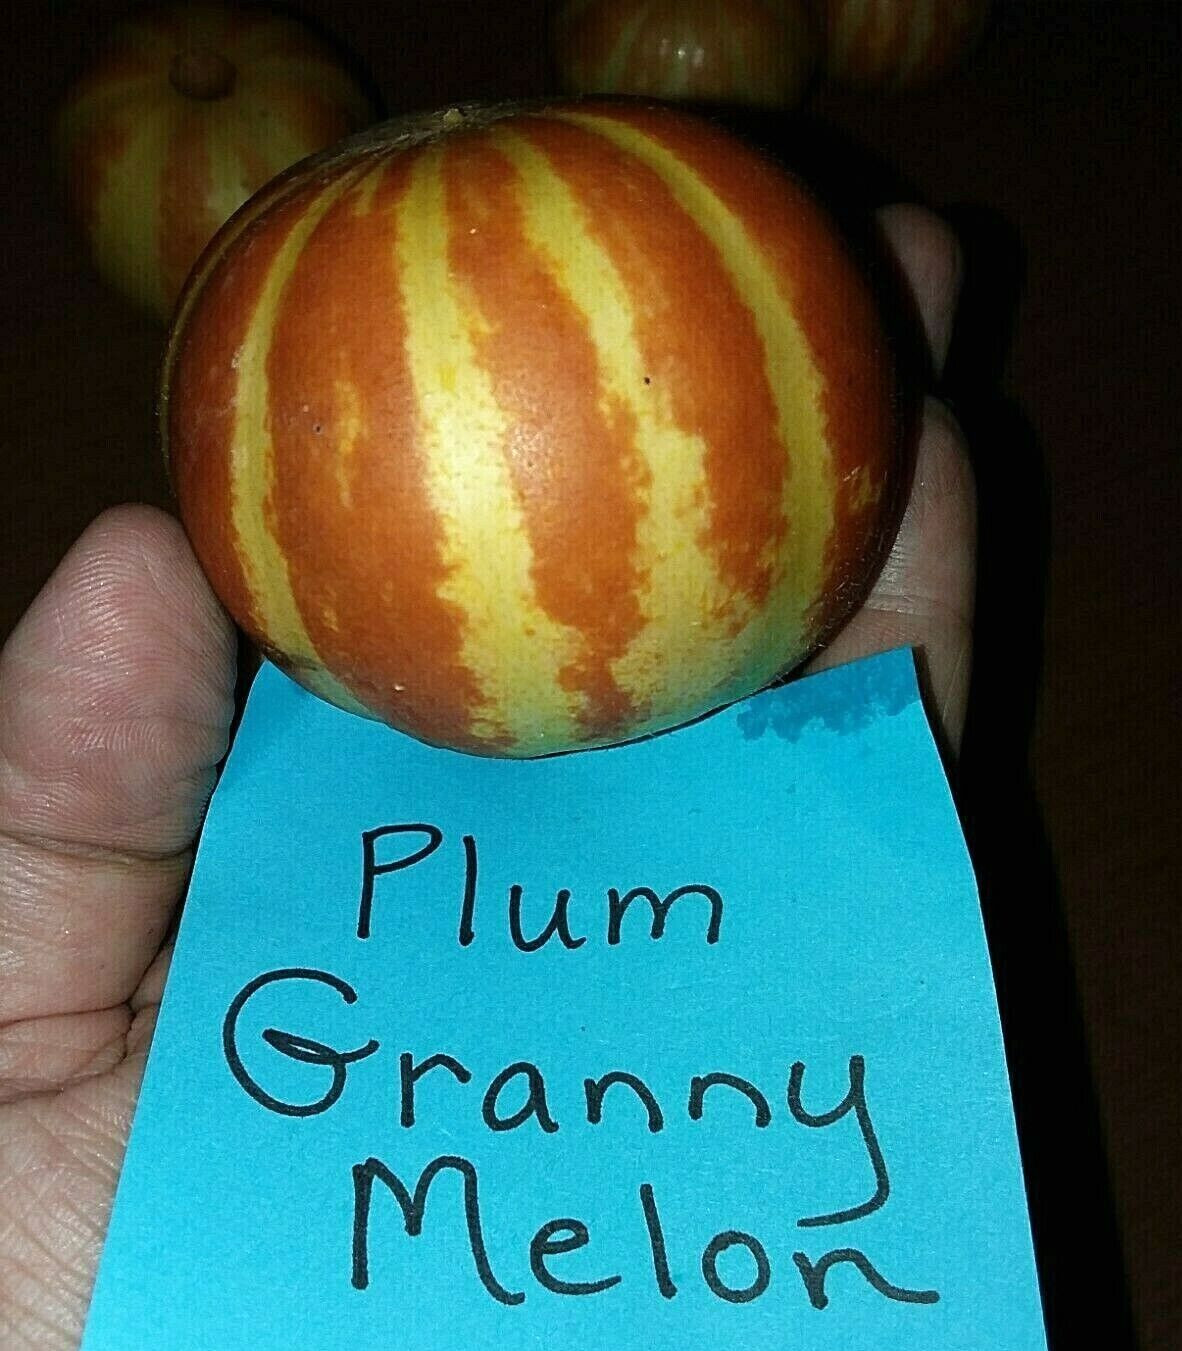 Plum
Granny
Melon